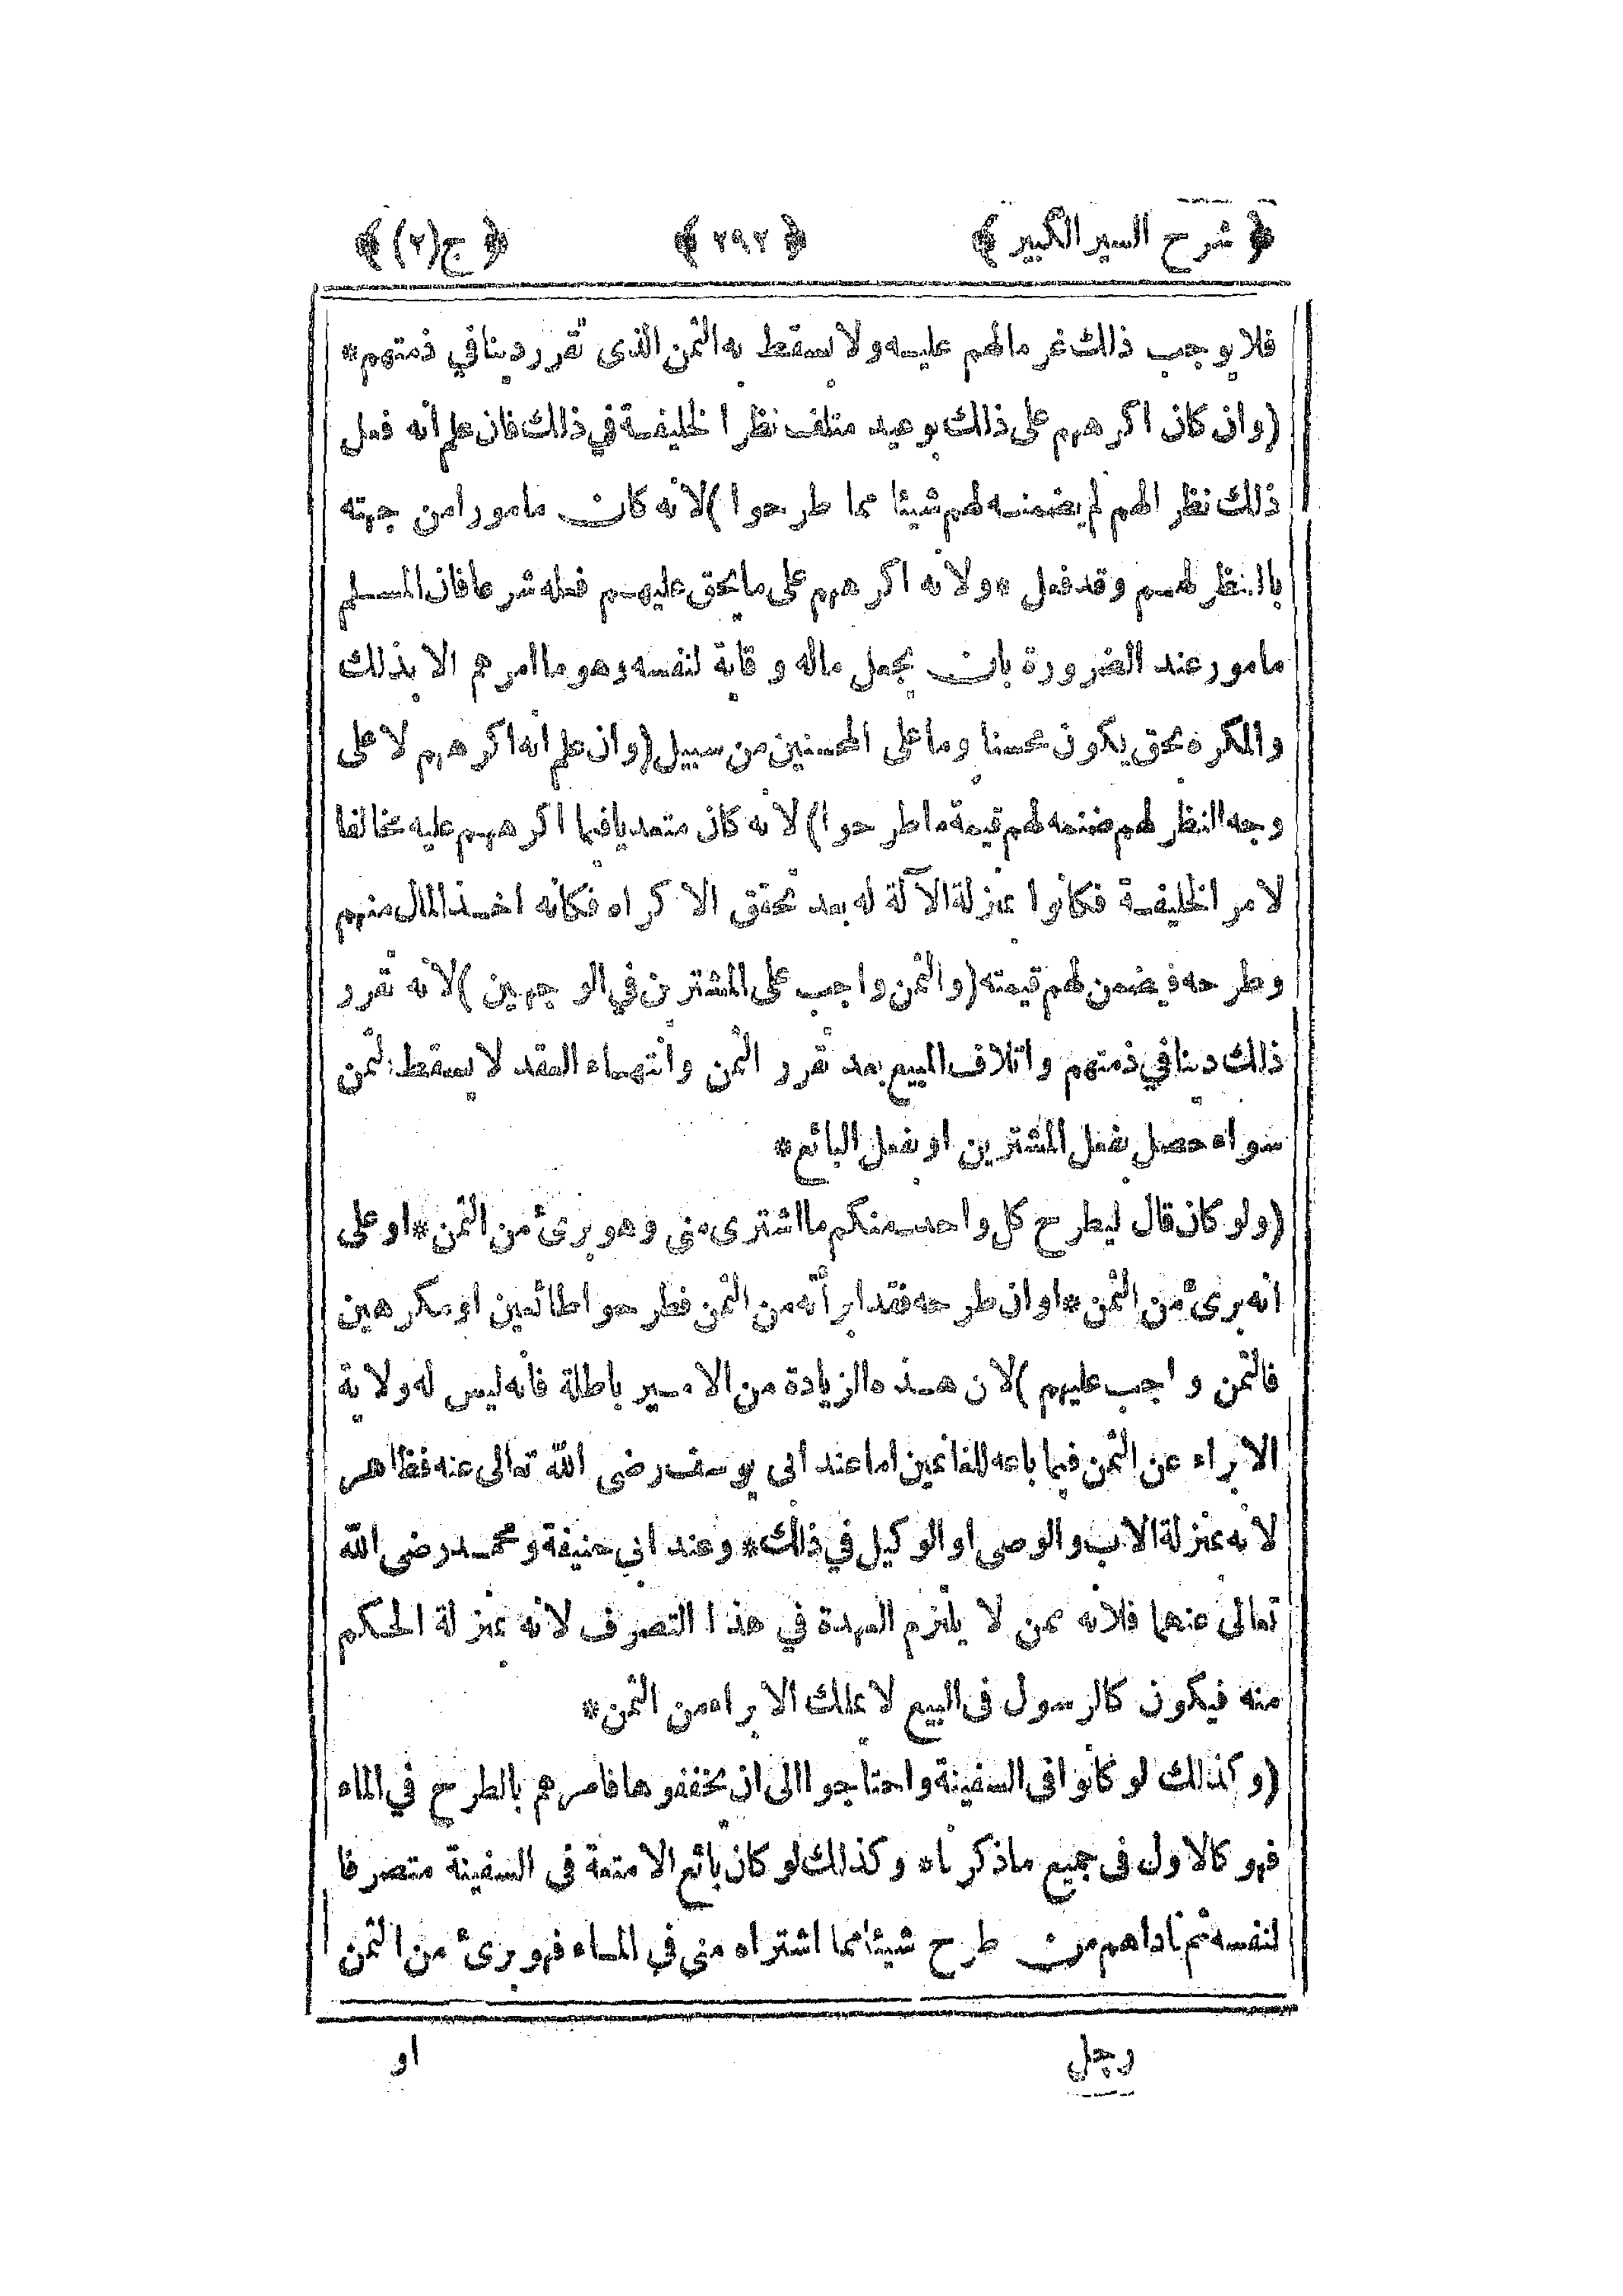 ﴿ شرح السير الكبير ﴾ ﴿ ٢٩٢ ﴾ ﴿ ج(٢) ﴾
فلا يوجب ذلك غرما لهم عليه ولا يسقط به الثمن الذى تقرر دينا في ذمتهم*
(وان كان اكرههم على ذلك بوعيد متلف نظر الخليفة في ذلك فان علم انه فعل
ذلك نظرا لهم لم يضمنه لهم شيئا مما طرحوا) لانه كان مامورا من جهته
بالنظر لهم وقد فعل * ولانه اكرههم على ما يحق عليهم فعله شرعا فان المسلم
مامور عند الضرورة بان يجعل ماله وقاية لنفسه وهو ما امرهم الا بذلك
والمكره بحق يكون محسنا وما على المحسنين من سبيل (وان علم انه اكرههم لا على
وجه النظر لهم ضمنه لهم قيمة ما طرحوا) لانه كان متعديا فيما اكرههم عليه مخالفا
لامر الخليفة فكانوا بمنزلة الآلة له بعد تحقق الاكراه فكانه اخذ المال منهم
وطرحه فيضمن لهم قيمته (والثمن واجب على المشترين في الوجهين) لانه تقرر
ذلك دينا في ذمتهم واتلاف المبيع بعد تقرر الثمن وانتهاء العقد لا يسقط الثمن
سواء حصل بفعل المشترين او بفعل البائع*
(ولو كان قال ليطرح كل واحد منكم ما اشترى منى وهو برئ من الثمن* او على
انه برئ من الثمن* او ان طرحه فقد ابرأته من الثمن فطرحوا طائعين او مكرهين
فالثمن واجب عليهم) لان هذه الزيادة من الامير باطلة فانه ليس له ولاية
الابراء عن الثمن فيما باعه للغانمين اما عند ابى يوسف رضى الله تعالى عنه فظاهر
لانه بمنزلة الاب والوصى او الوكيل في ذلك* وعند ابى حنيفة ومحمد رضى الله
تعالى عنهما فلانه ممن لا يلتزم العهدة في هذا التصرف لانه بمنزلة الحكم
منه فيكون كالرسول فى البيع لا يملك الابراء من الثمن*
(وكذلك لو كانوا فى السفينة واحتاجوا الى ان يخففوها فامرهم بالطرح في الماء
فهو كالاول فى جميع ما ذكرناه وكذلك لو كان بائع الامتعة فى السفينة متصرفا
لنفسه ثم ناداهم من طرح شيئا مما اشتراه منى في الماء فهو برئ من الثمن
رجل او